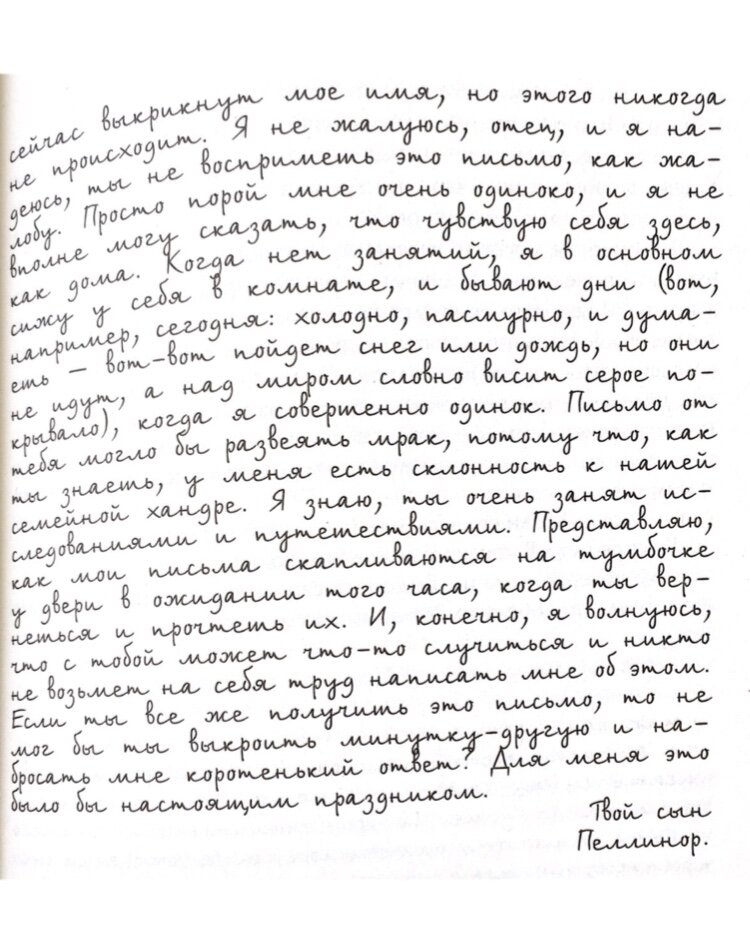 сейчас выкрикнут мое имя, но этого никогда
не происходит. Я не жалуюсь, отец, и я на-
деюсь, ты не воспримешь это письмо, как жа-
лобу. Просто порой мне очень одиноко, и я не
вполне могу сказать, что чувствую себя здесь,
как дома. Когда нет занятий, я в основном
сижу у себя в комнате, и бывают дни (вот,
например, сегодня: холодно, пасмурно, и дума-
ешь – вот-вот пойдет снег или дождь, но они
не идут, а над миром словно висит серое по-
крывало), когда я совершенно одинок. Письмо от
тебя могло бы развеять мрак, потому что, как
ты знаешь, у меня есть склонность к нашей
семейной хандре. Я знаю, ты очень занят ис-
следованиями и путешествиями. Представляю,
как мои письма скапливаются на тумбочке
у двери в ожидании того часа, когда ты вер-
нешься и прочтешь их. И, конечно, я волнуюсь,
что с тобой может что-то случиться и никто
не возьмет на себя труд написать мне об этом.
Если ты все же получишь это письмо, то не
мог бы ты выкроить минутку-другую и на-
бросать мне коротенький ответ? Для меня это
было бы настоящим праздником.
Твой сын
Пеллинор.